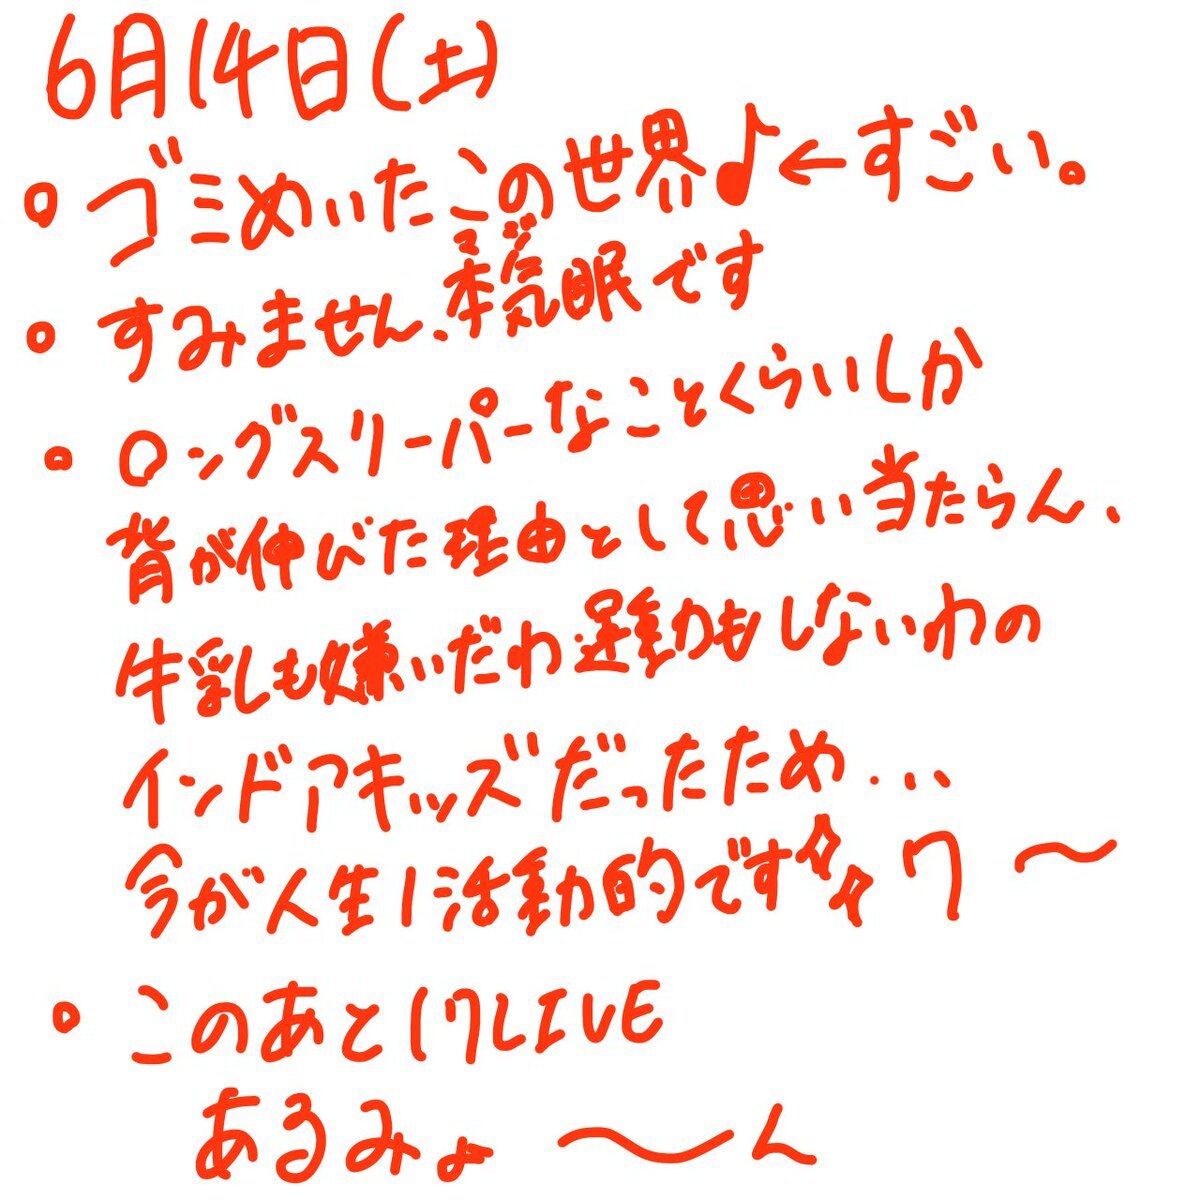 6月14日(土)
。ゴミめいたこの世界♪←すごい。
マジ
。すみません、本気眠です
。ロングスリーパーなことくらいしか
背が伸びた理由として思い当たらん、
牛乳も嫌いだわ運動もしないわの
インドアキッズだったため...
今が人生1活動的です✨ワ〜
。このあと17LIVE
あるみょ〜ん